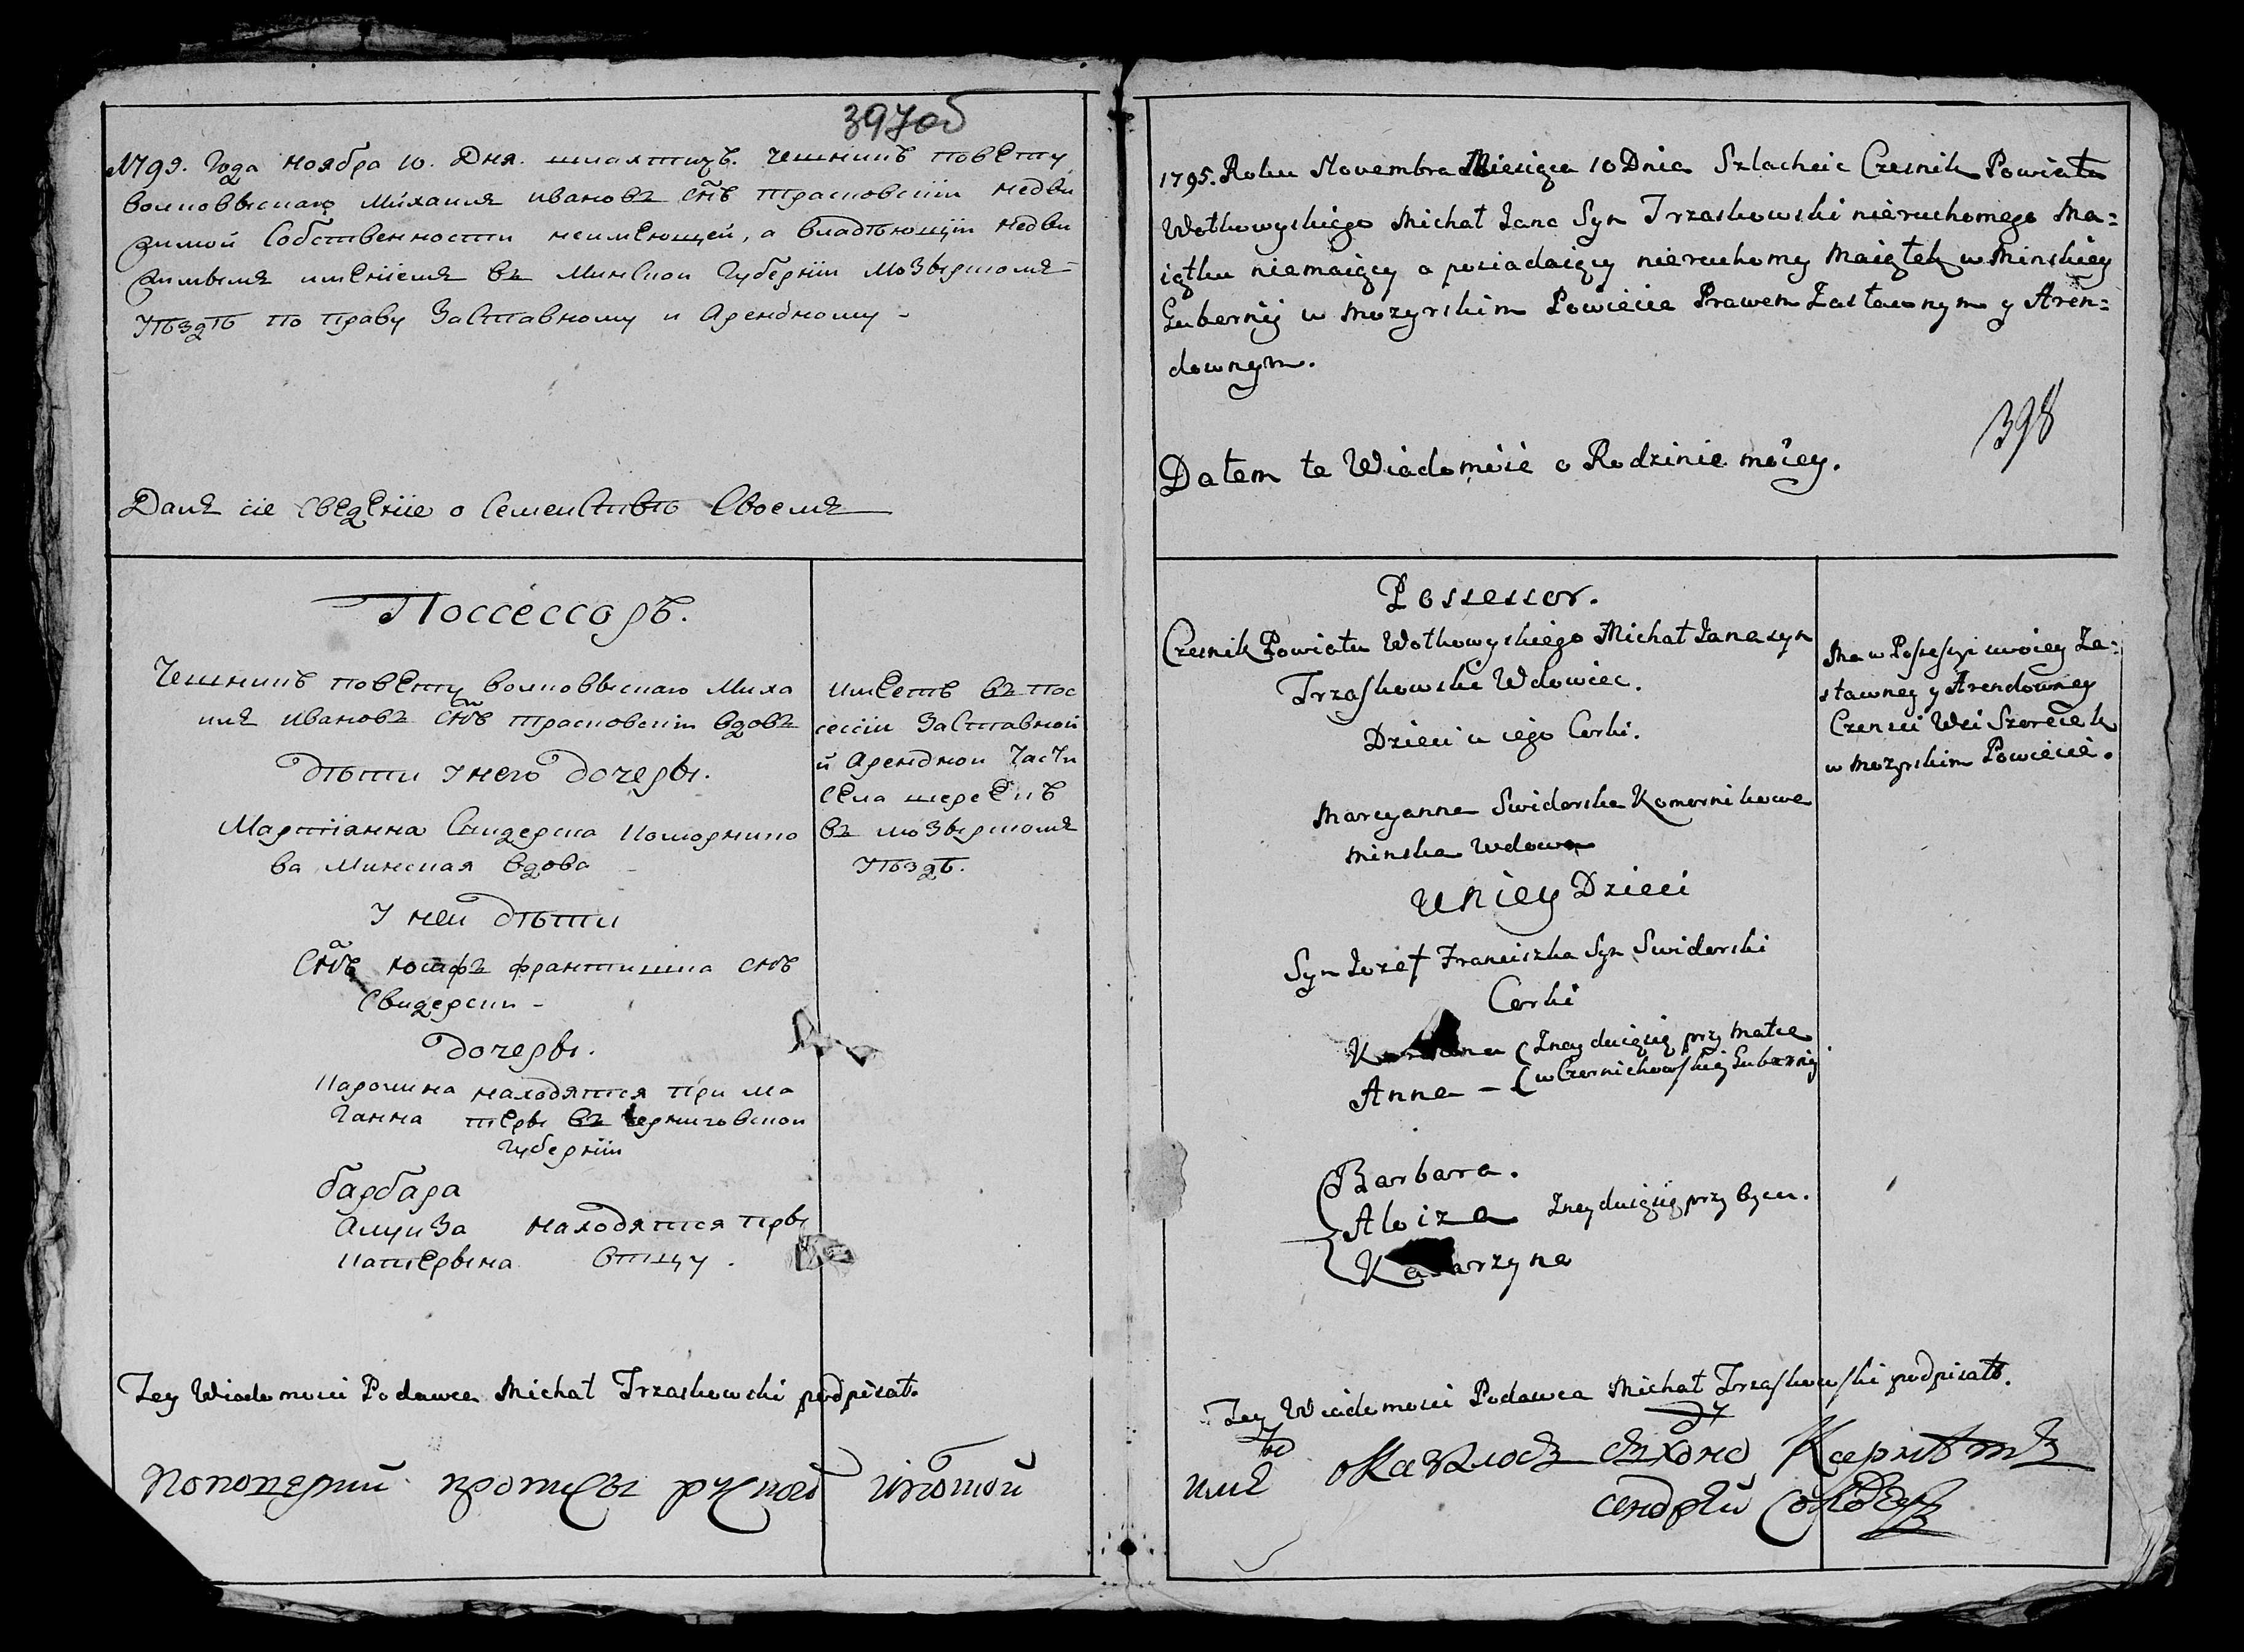 397об
1795. Года ноября 10. Дня. шляхтичъ. чешникъ повету
волковыскаго Михаилъ ивановъ снъ трасковскіи недви
зимой собственности неимеющей, а владѣющіи недви
зимымъ имѣніемъ въ Минской Губерніи Мозырскомъ
Уѣздѣ по праву Заставному и Арендному -
Далъ сіе сведеніе о семействѣ своемъ
Поссессоръ.
Чешникъ повету волковыскаго Миха
илъ ивановъ снъ трасковскіи вдовъ
дѣти У него дочеры.
Марціянна Свидерска Коморнико
ва Минская вдова
У ней дѣти
снъ юсифъ францишка снъ
Свидерски -
дочеры.
Каролина находятся при ма
Ганна теры въ черниговскои
губерніи
барбара
алуиза находятся пры
катерына отцу.
имеетъ въ пос
сессіи Заставной
и Арендной Части
села шерекъ
въ мозырскомъ
Уѣздѣ.
Tey Wiadomosci Podawca Michał Trzaskowski podpisał.
1795. Roku Novembra Miesiąca 10 Dnia Szlachcic Czesnik Powiatu
Wołkowyskiego Michał Jana Syn Trzaskowski nieruchomego Ma=
iątku niemaiący a posiadaiący nieruchomy Maiątek w Minskiey
Gubernij w Mozyrskim Powiecie Prawem Zastawnym y Aren=
downym.
398
Dałem te Wiadomość o Rodzinie moiey.
Possessor.
Czesnik Powiatu Wołkowyskiego Michał Jana syn
Trzaskowski Wdowiec.
Dzieci u iego Corki.
Marcyanna Swiderska Komornikowa
Minska Wdowa
U Niey Dzieci
Syn Jozef Franciszka Syn Swiderski
Corki
Anna - (w Czernichowskiey Gubernij
(Znayduiąsię przy Matce
Barbara.
Aloiza Znayduiąsię przy Oycu.
Katarzyna
Ma w Possesyi swoiey Za=
stawney y Arendowney
Czensci Wsi Szereiek
w Mozyrskim Powiecie.
Tey Wiadomosci Podawca Michał Trzaskowski podpisał.